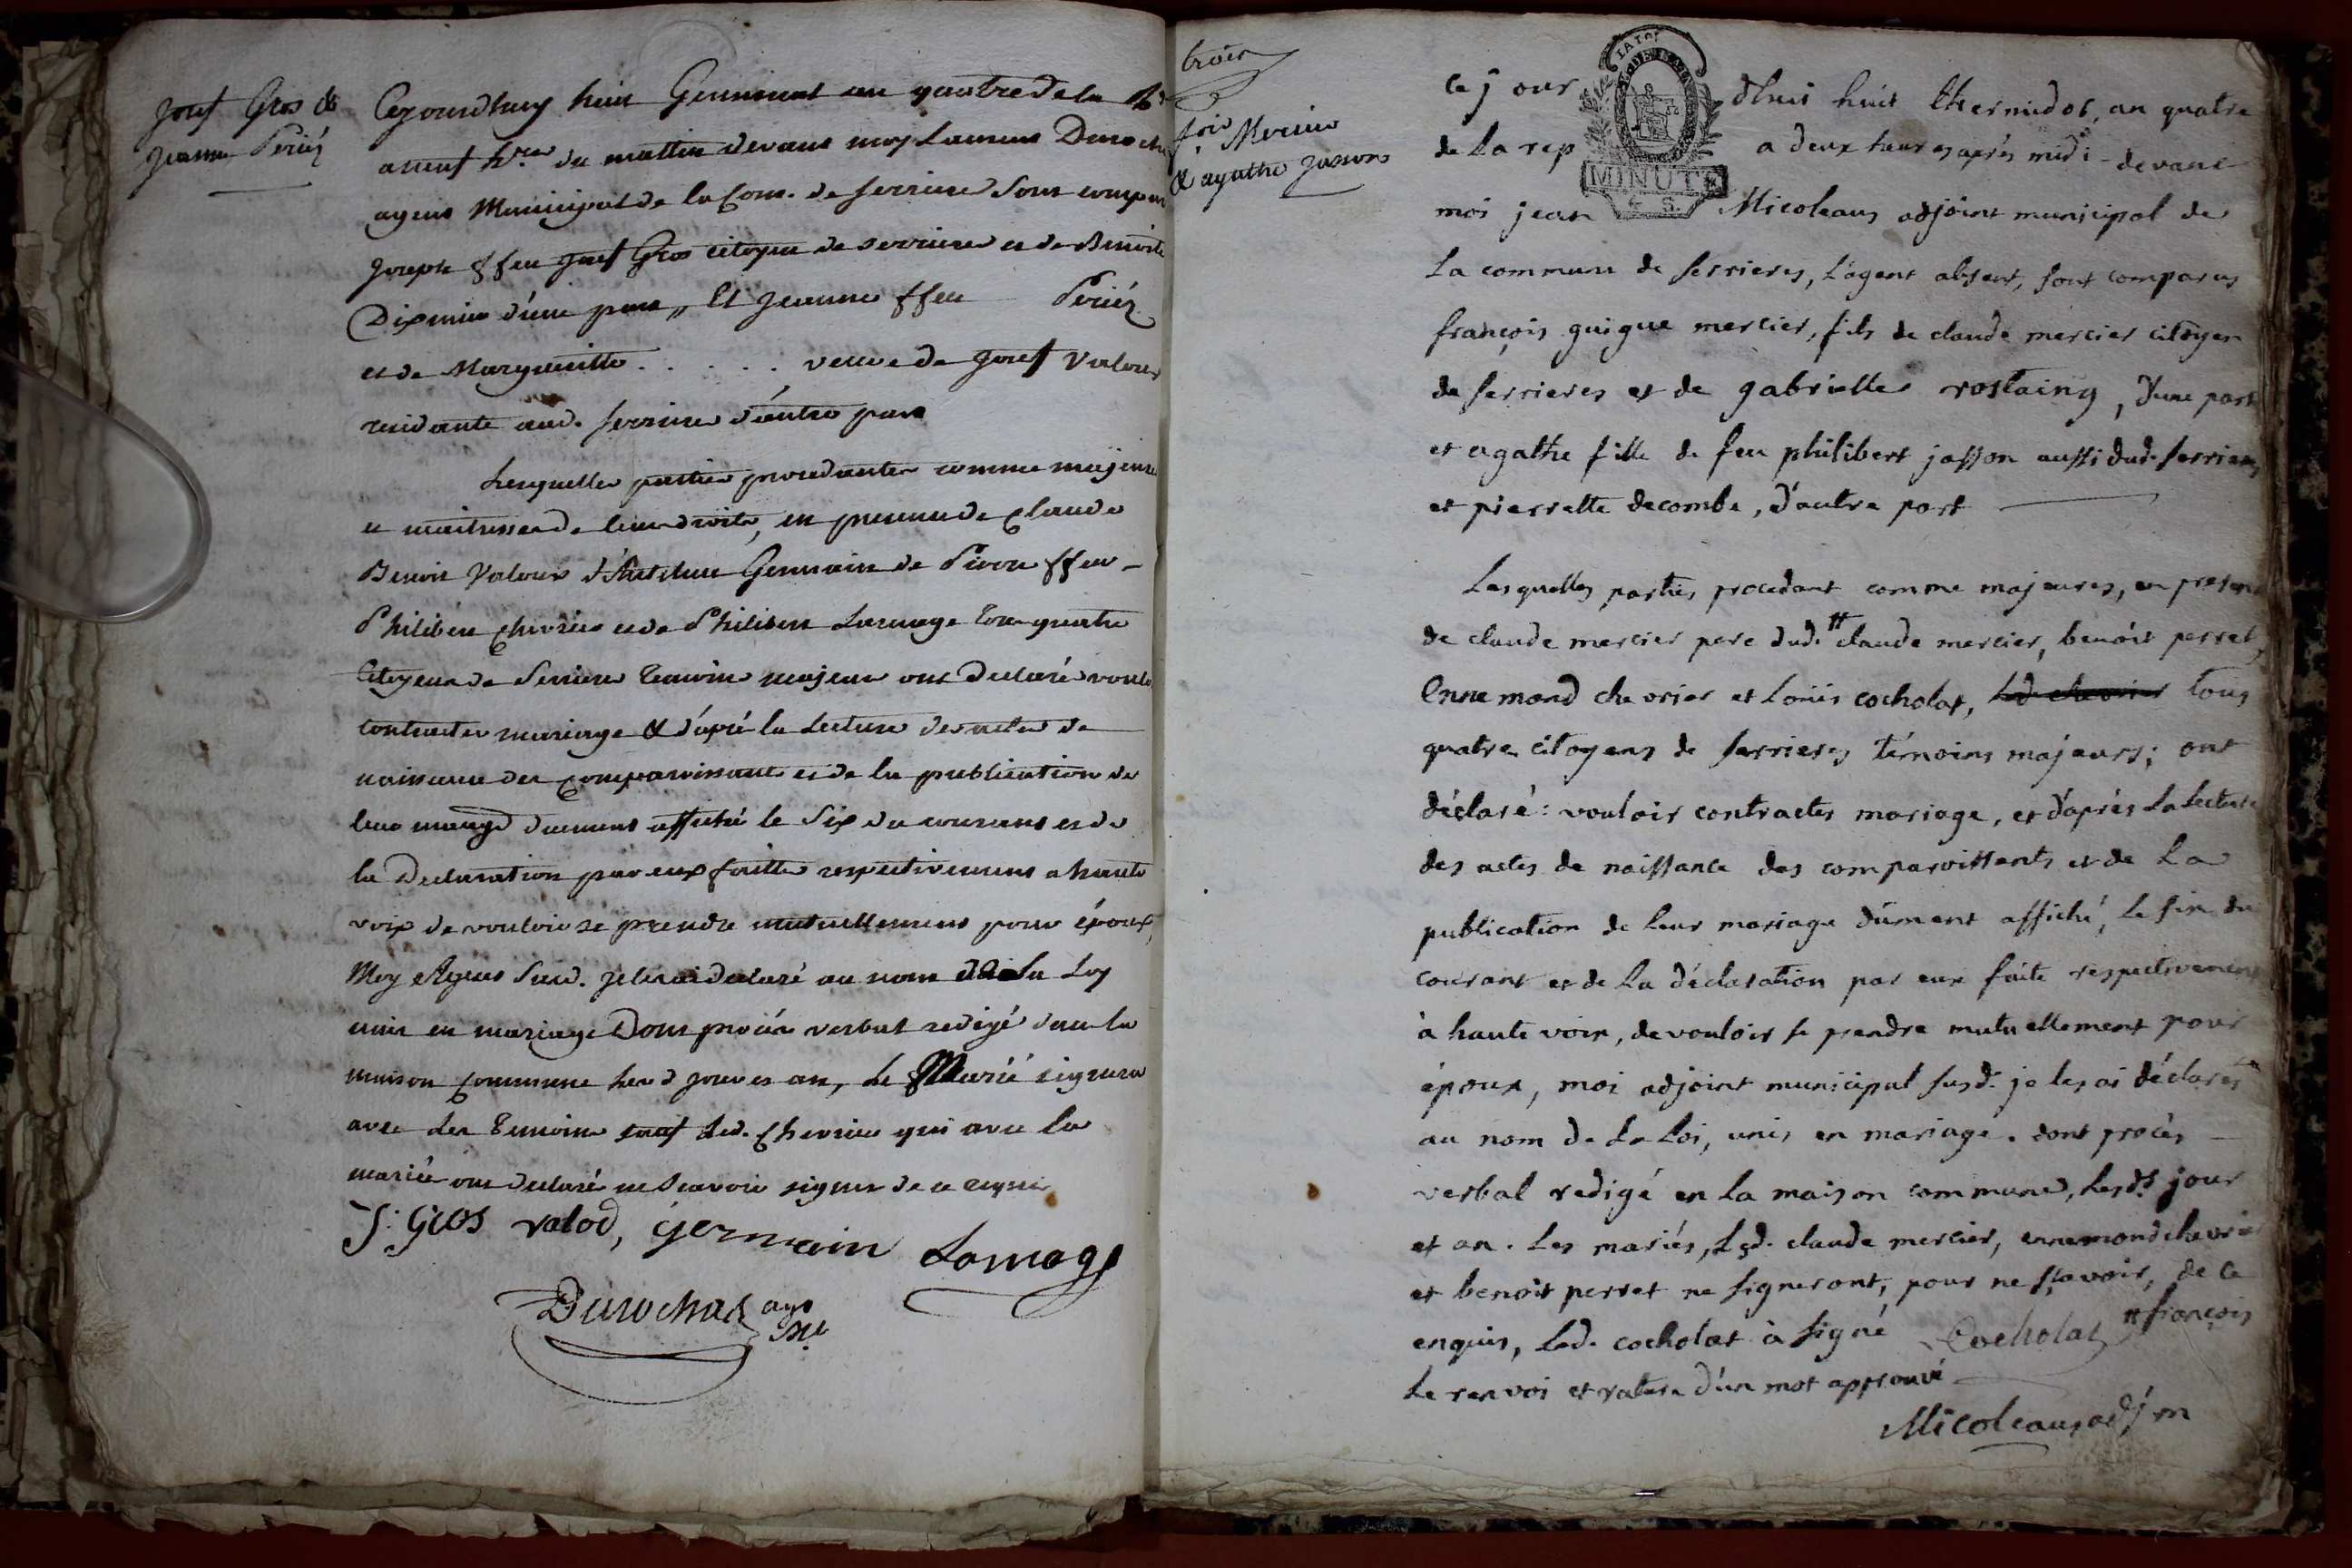 Josef Gros &
Jeanne Periéz
Cejourdhuy huit Germinal an quatre de la
a neuf hres du mattin devant moy Laurens Duroch
agent Municipal de la Com. de Serriere Sont compar
Joseph ffeu Josef Gros citoyen de Serriere et de Benoite
Dixmier d'une part,, Et Jeanne ffeu Periéz
et de Margueritte . . . . . veuve de Josef Valour
residante aud. Serriere d'autre part
Lesquelles parties procedantes comme majeures
et maitresses de leurs droits, en presence de Claude
Benoit Valour d' Germain de Pierre ffeu
Philibert Chevrier et de Philibert Lamage tous quatre
Citoyens de Serriere Temoins majeurs ont Declaré voulo
contracter mariage & d'apré la Lecture des actes de
naissance des comparoissants et de la publication de
leur mariage duement affiché le Six du courant et de
la Declaration par eux faitte respectivement a haute
voix de vouloir se prendre mutuellement pour époux,
Moy Agent Susd. je les ai declaré au nom de la Loy
unis en mariage Dont procés verbal redigé dans la
maison Commune lesd jour et an, Le Marié signera
avec les Temoins sauf led. Chevrier qui avec la
mariée ont declaré ne Scavoir signer de ce enquis
J: Gros valod, germain Lamage
Durochat agt
Mal
trois
fois Mercier
& agathe Jasson
ce jour dhui huit thermidor, an quatre
de La rep a deux heures après midi - devant
MINUTE
moi jean Micoleaus adjoint municipal de
La commune de serrieres, L'agent absent, sont comparus
françois guigue mercier, fils de claude mercier citoyen
de serrieres et de gabrielle rostaing, d'une part
et agathe fille de feu philibert jasson aussi dud. serrieres
et pierrette decombe, d'autre part
Lesquelles parties procedant comme majeures, en presence
de claude mercier pere dud. # claude mercier, benoit perret,
Ennemond chevrier et Loüis cocholat, Led chevrier tous
quatre citoyens de serrieres témoins majeurs; ont
déclaré: vouloir contracter mariage, et d'après La Lecture
des actes de naissance des comparoissants et de La
publication de Leur mariage dûment affiché, Le six du
courant et de La déclaration par eux faite respectivement
à haute voix, de vouloir se prendre mutuellement pour
époux, moi adjoint municipal susd. je les ai déclarés
au nom de La Loi, unis en mariage. dont procès
verbal redigé en La maison commune, Lesds jour
et an. Les mariés, Led. claude mercier, ennemond chevrier
et benoit perret ne signeront, pour ne sçavoir, de ce
enquis, Led. cocholat à signé Cocholat # françois
Le renvoi et rature d'un mot approuvé
Micoleaus adj m